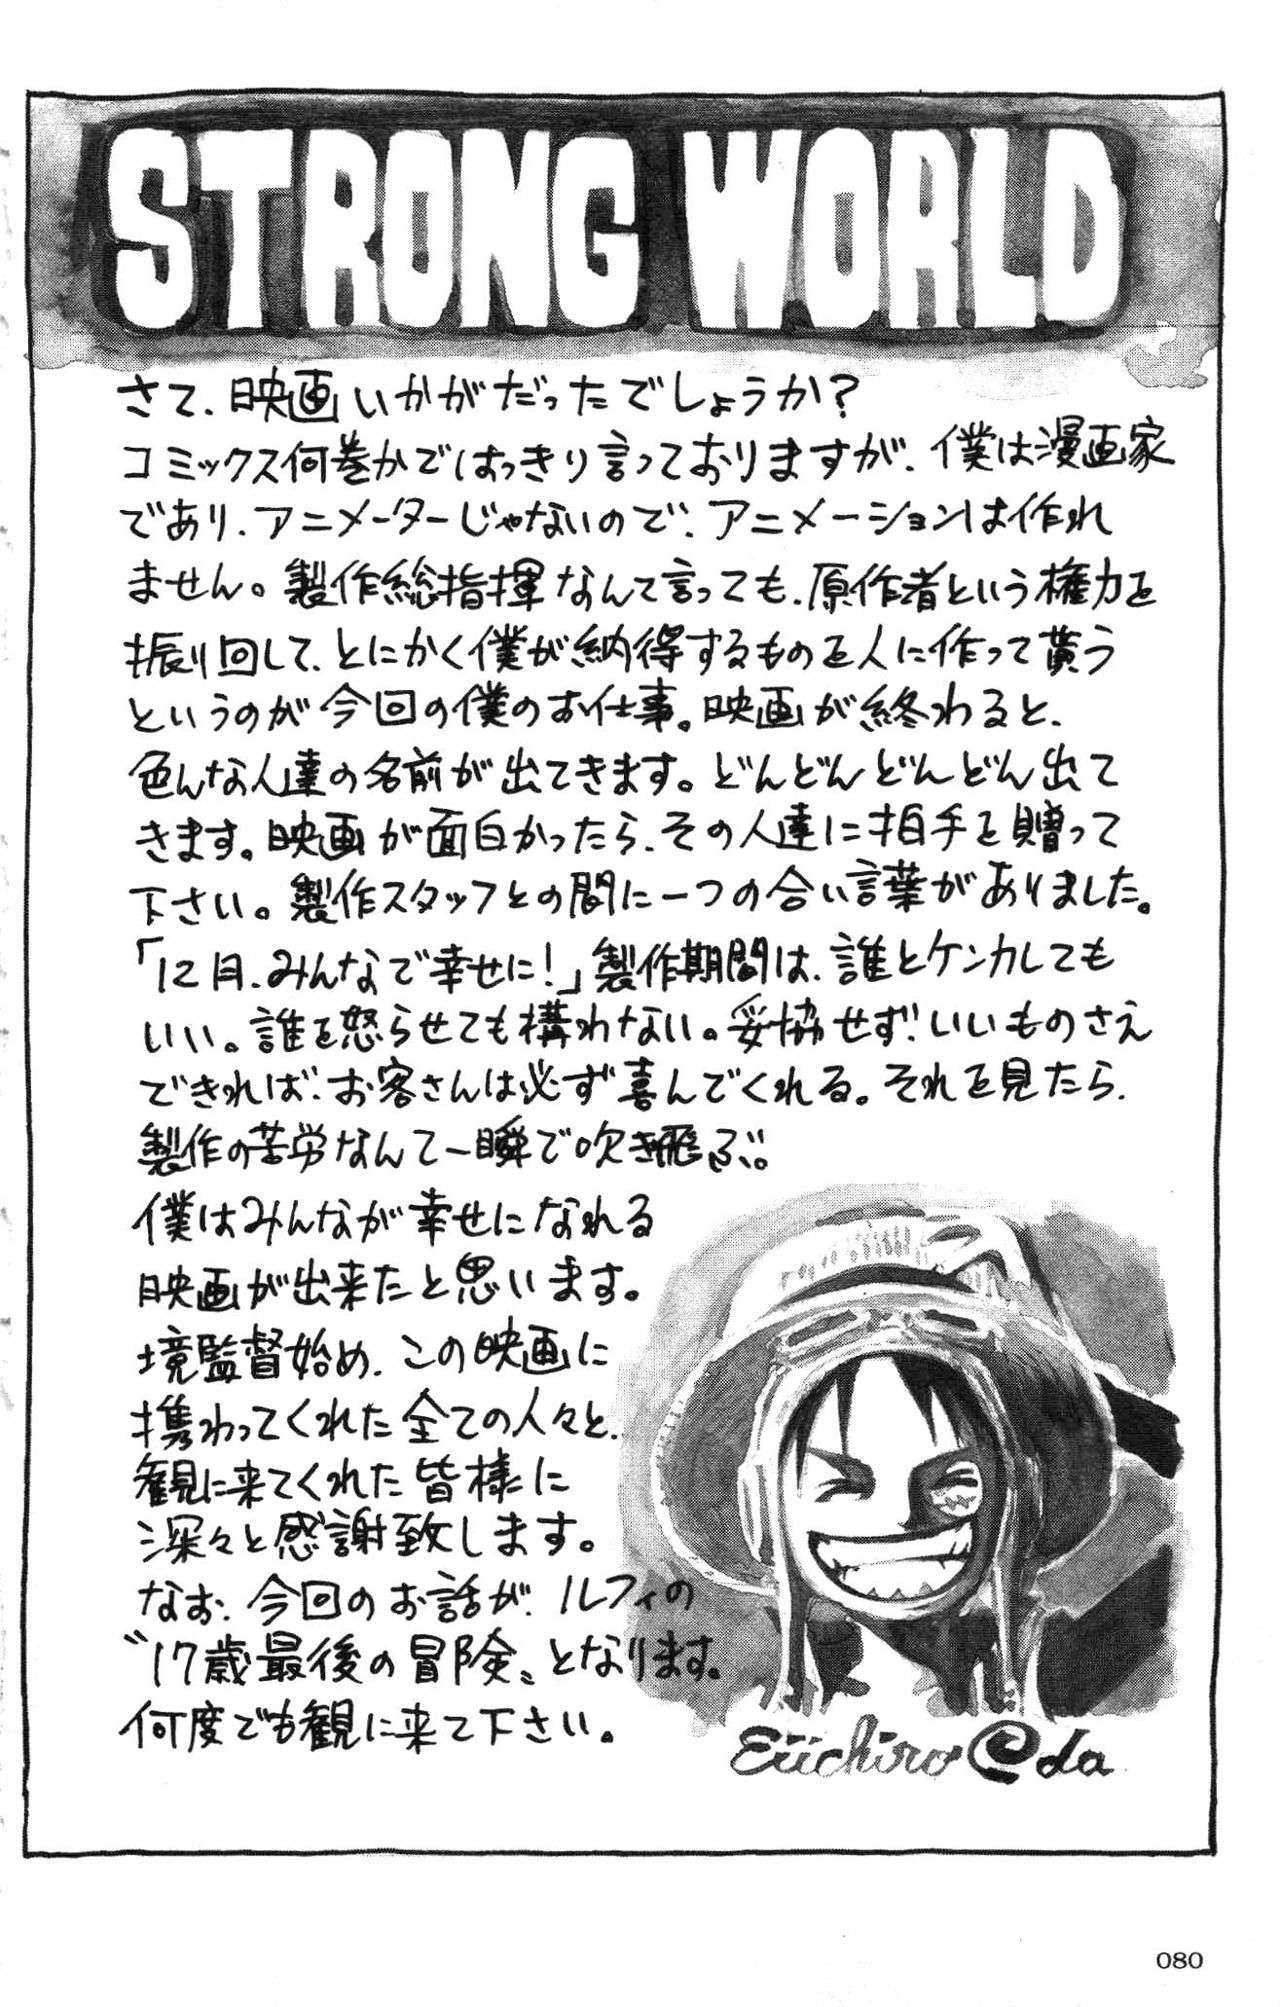 STRONG WORLD
さて、映画いかがだったでしょうか?
コミックス何巻かではっきり言っておりますが、僕は漫画家
であり、アニメーターじゃないので、アニメーションは作れ
ません。製作総指揮なんて言っても、原作者という権力を
振り回して、とにかく僕が納得するものを人に作って貰う
というのが今回の僕のお仕事。映画が終わると、
色んな人達の名前が出てきます。どんどんどんどん出て
きます。映画が面白かったら、その人達に拍手を贈って
下さい。製作スタッフとの間に一つの合い言葉がありました。
「12月、みんなで幸せに!」製作期間は、誰とケンカしても
いい。誰を怒らせても構わない。妥協せず、いいものさえ
できれば、お客さんは必ず喜んでくれる。それを見たら、
製作の苦労なんて一瞬で吹き飛ぶ。
僕はみんなが幸せになれる
映画が出来たと思います。
境監督始め、この映画に
携わってくれた全ての人々と、
観に来てくれた皆様に
深々と感謝致します。
なお、今回のお話が、ルフィの
〝17歳最後の冒険〟となります。
何度でも観に来て下さい。
Eiichiro Oda
080